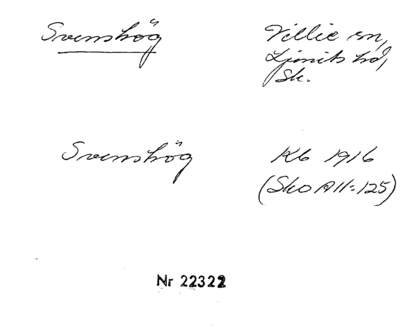 Svenshög
Villie sn,
Ljunits hd,
Sk.
Svenshög
Kb 1916
(Sko A II:125)
Nr 22322